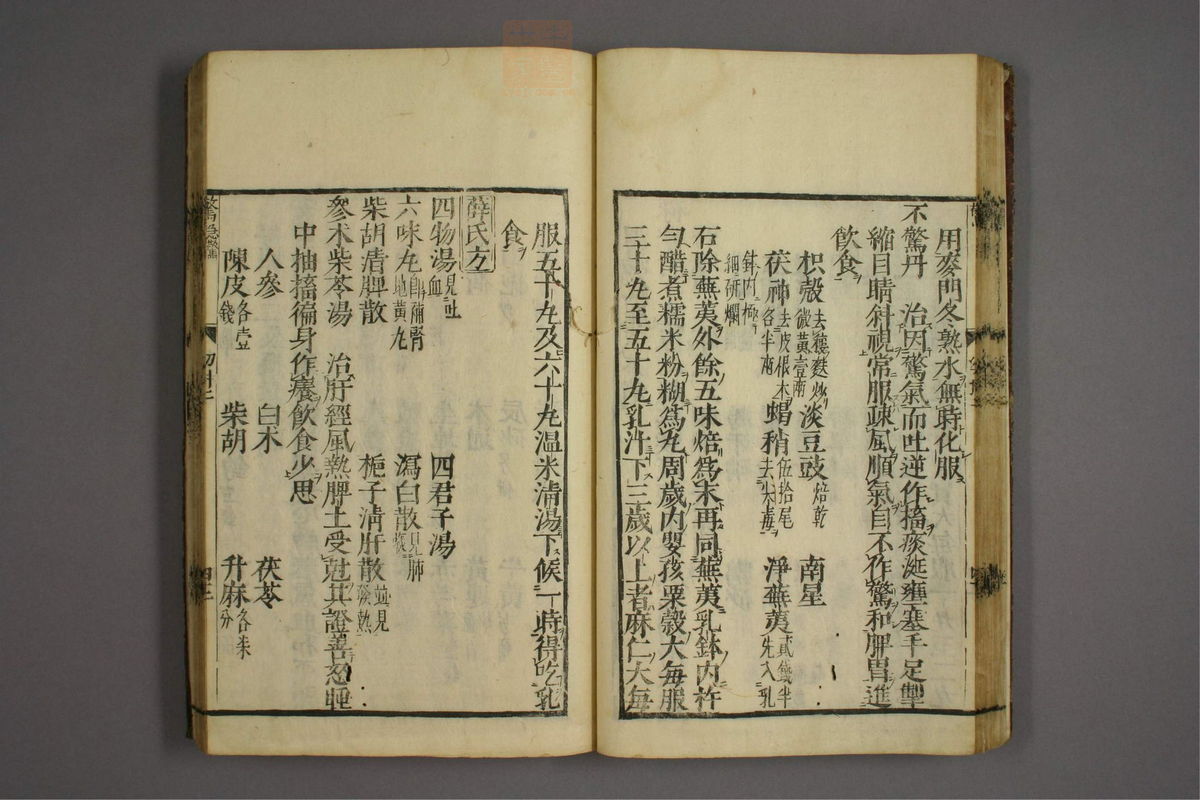 用麥門冬熟水無時化服
不驚丹 治因驚氣而吐逆作搐痰涎壅塞手足掣
縮目睛斜視常服疎風順氣自不作驚和脾胃進
飲食
枳殼去穰麩炒微黃壹兩 淡豆豉焙乾 南星
茯神去皮根木各半兩 蝎稍伍拾尾去尖毒 淨蕪荑貳錢半先入乳
鉢內極細研爛
右除蕪荑外餘五味焙爲末再同蕪荑乳鉢內杵
勻醋煮糯米粉糊爲丸周歲內嬰孩粟穀大每服
三十丸至五十丸乳汁下三歲以上者麻仁大每
服五十丸及六十丸温米清湯下候一時得吃乳
食
薛氏方
四物湯見吐血 四君子湯
六味丸自汗補腎地黃丸 瀉白散見肺
柴胡清脾散 梔子清肝散並見發熱
參朮柴苓湯 治肝經風熱脾土受尅其證善怒睡
中抽搐徧身作癢飲食少思
人參 白朮 茯苓
陳皮各壹錢 柴胡 升麻各柒分